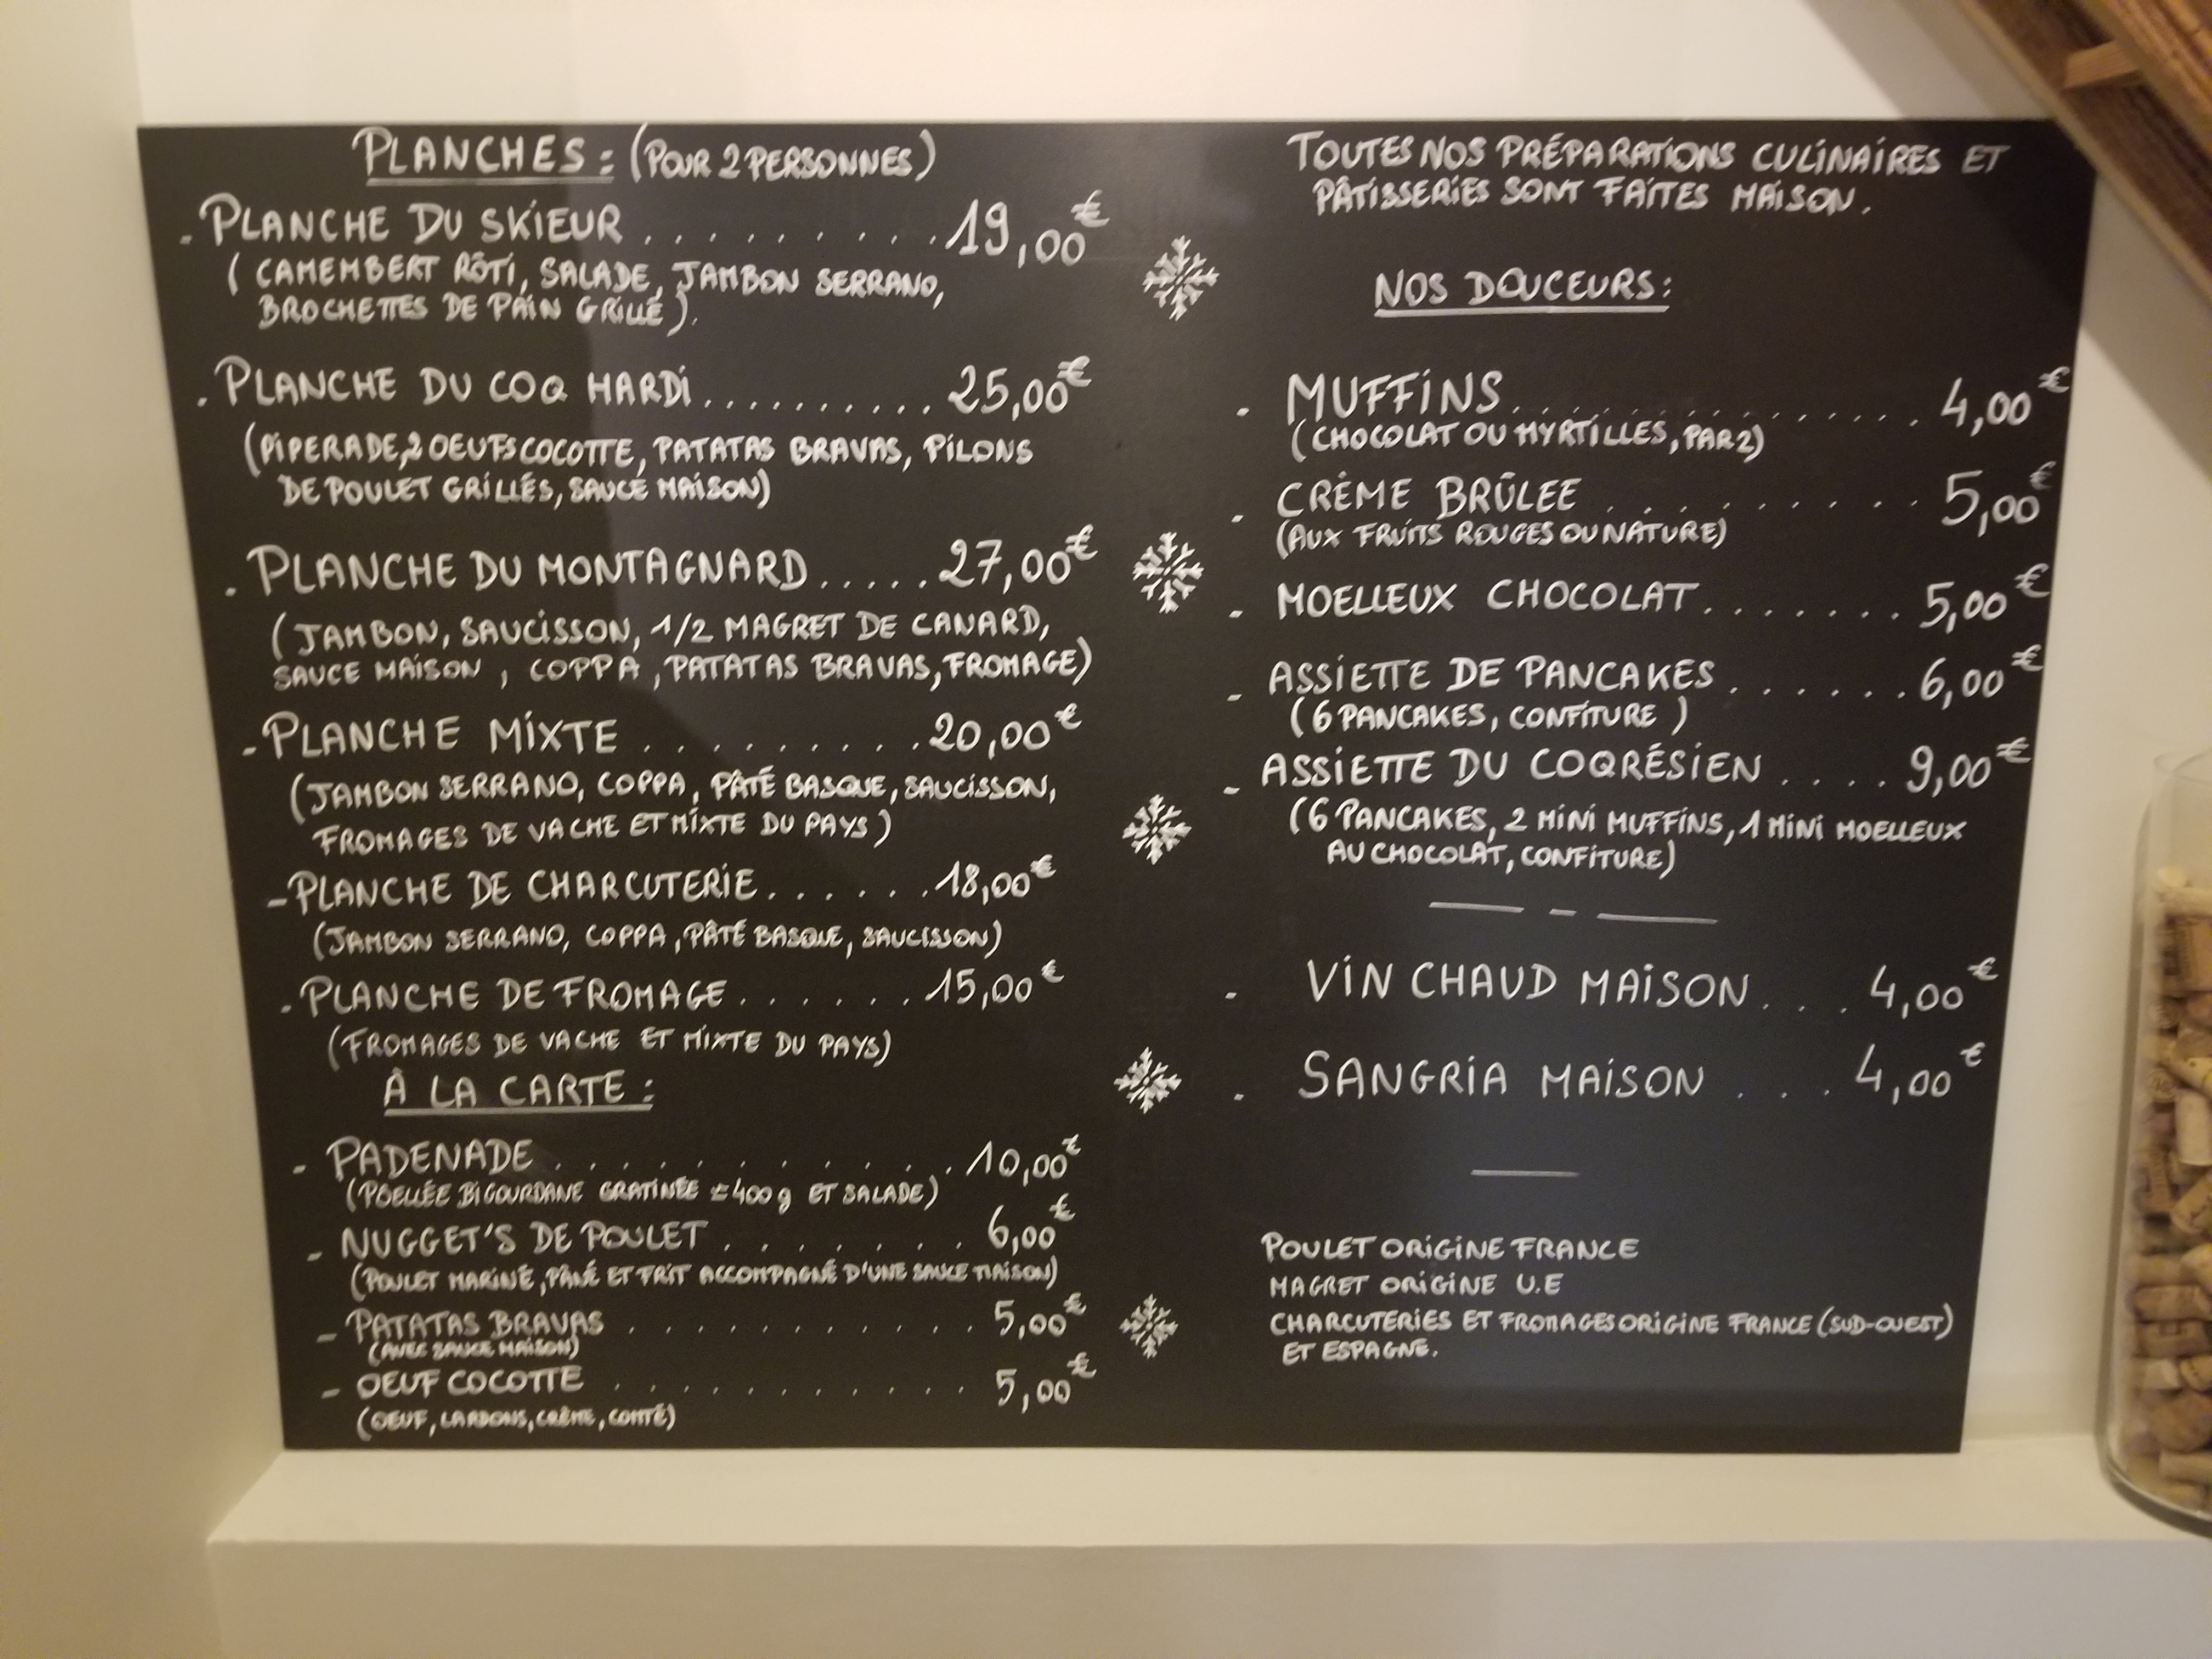 PLANCHES : (POUR 2 PERSONNES)
- PLANCHE DU SKIEUR . . . . . . . . . 19,00€
( CAMEMBERT RÔTI, SALADE, JAMBON SERRANO,
BROCHETTES DE PAIN GRILLÉ ).
. PLANCHE DU COQ HARDI . . . . . . . . . . 25,00€
(PIPERADE, 2 OEUFS COCOTTE, PATATAS BRAVAS, PILONS
DE POULET GRILLÉS, SAUCE MAISON)
. PLANCHE DU MONTAGNARD . . . . . 27,00€
(JAMBON, SAUCISSON, 1/2 MAGRET DE CANARD,
SAUCE MAISON , COPPA , PATATAS BRAVAS, FROMAGE)
- PLANCHE MIXTE . . . . . . . . . 20,00€
(JAMBON SERRANO, COPPA, PÂTÉ BASQUE, SAUCISSON,
FROMAGES DE VACHE ET MIXTE DU PAYS )
- PLANCHE DE CHARCUTERIE . . . . . . 18,00€
(JAMBON SERRANO, COPPA , PÂTÉ BASQUE, SAUCISSON)
. PLANCHE DE FROMAGE . . . . . . 15,00€
(FROMAGES DE VACHE ET MIXTE DU PAYS)
À LA CARTE :
- PADENADE . . . . . . . . . . . . 10,00€
(POELLÉE BIGOURDANE GRATINÉE ≃400g ET SALADE)
- NUGGET'S DE POULET . . . . . . . . 6,00€
(POULET MARINÉ, PÂNÉ ET FRIT ACCOMPAGNÉ D'UNE SAUCE MAISON)
- PATATAS BRAVAS . . . . . . . . . . . . 5,00€
(AVEC SAUCE MAISON)
- OEUF COCOTTE . . . . . . . . . . . . 5,00€
(OEUF, LARDONS, CRÈME, COMTÉ)
TOUTES NOS PRÉPARATIONS CULINAIRES ET
PÂTISSERIES SONT FAITES MAISON.
NOS DOUCEURS :
- MUFFINS . . . . . . . . . . . . . 4,00€
(CHOCOLAT OU MYRTILLES, PAR 2)
- CRÈME BRÛLEE . . . . . . . . . 5,00€
(AUX FRUITS ROUGES OU NATURE)
- MOELLEUX CHOCOLAT . . . . . . . 5,00€
- ASSIETTE DE PANCAKES . . . . . . 6,00€
( 6 PANCAKES, CONFITURE )
- ASSIETTE DU COQRÉSIEN . . . . 9,00€
(6 PANCAKES, 2 MINI MUFFINS, 1 MINI MOELLEUX
AU CHOCOLAT, CONFITURE)
- VIN CHAUD MAISON . . . 4,00€
- SANGRIA MAISON . . . 4,00€
POULET ORIGINE FRANCE
MAGRET ORIGINE U.E
CHARCUTERIES ET FROMAGES ORIGINE FRANCE (SUD-OUEST)
ET ESPAGNE.